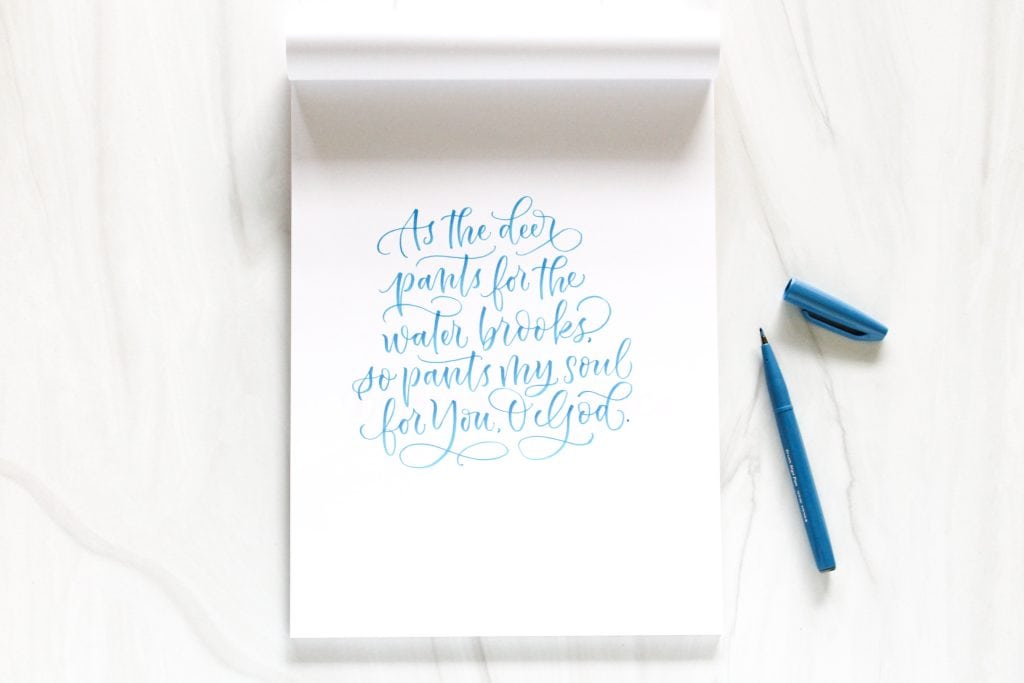 As the deer
pants for the
water brooks,
so pants my soul
for You, O God.